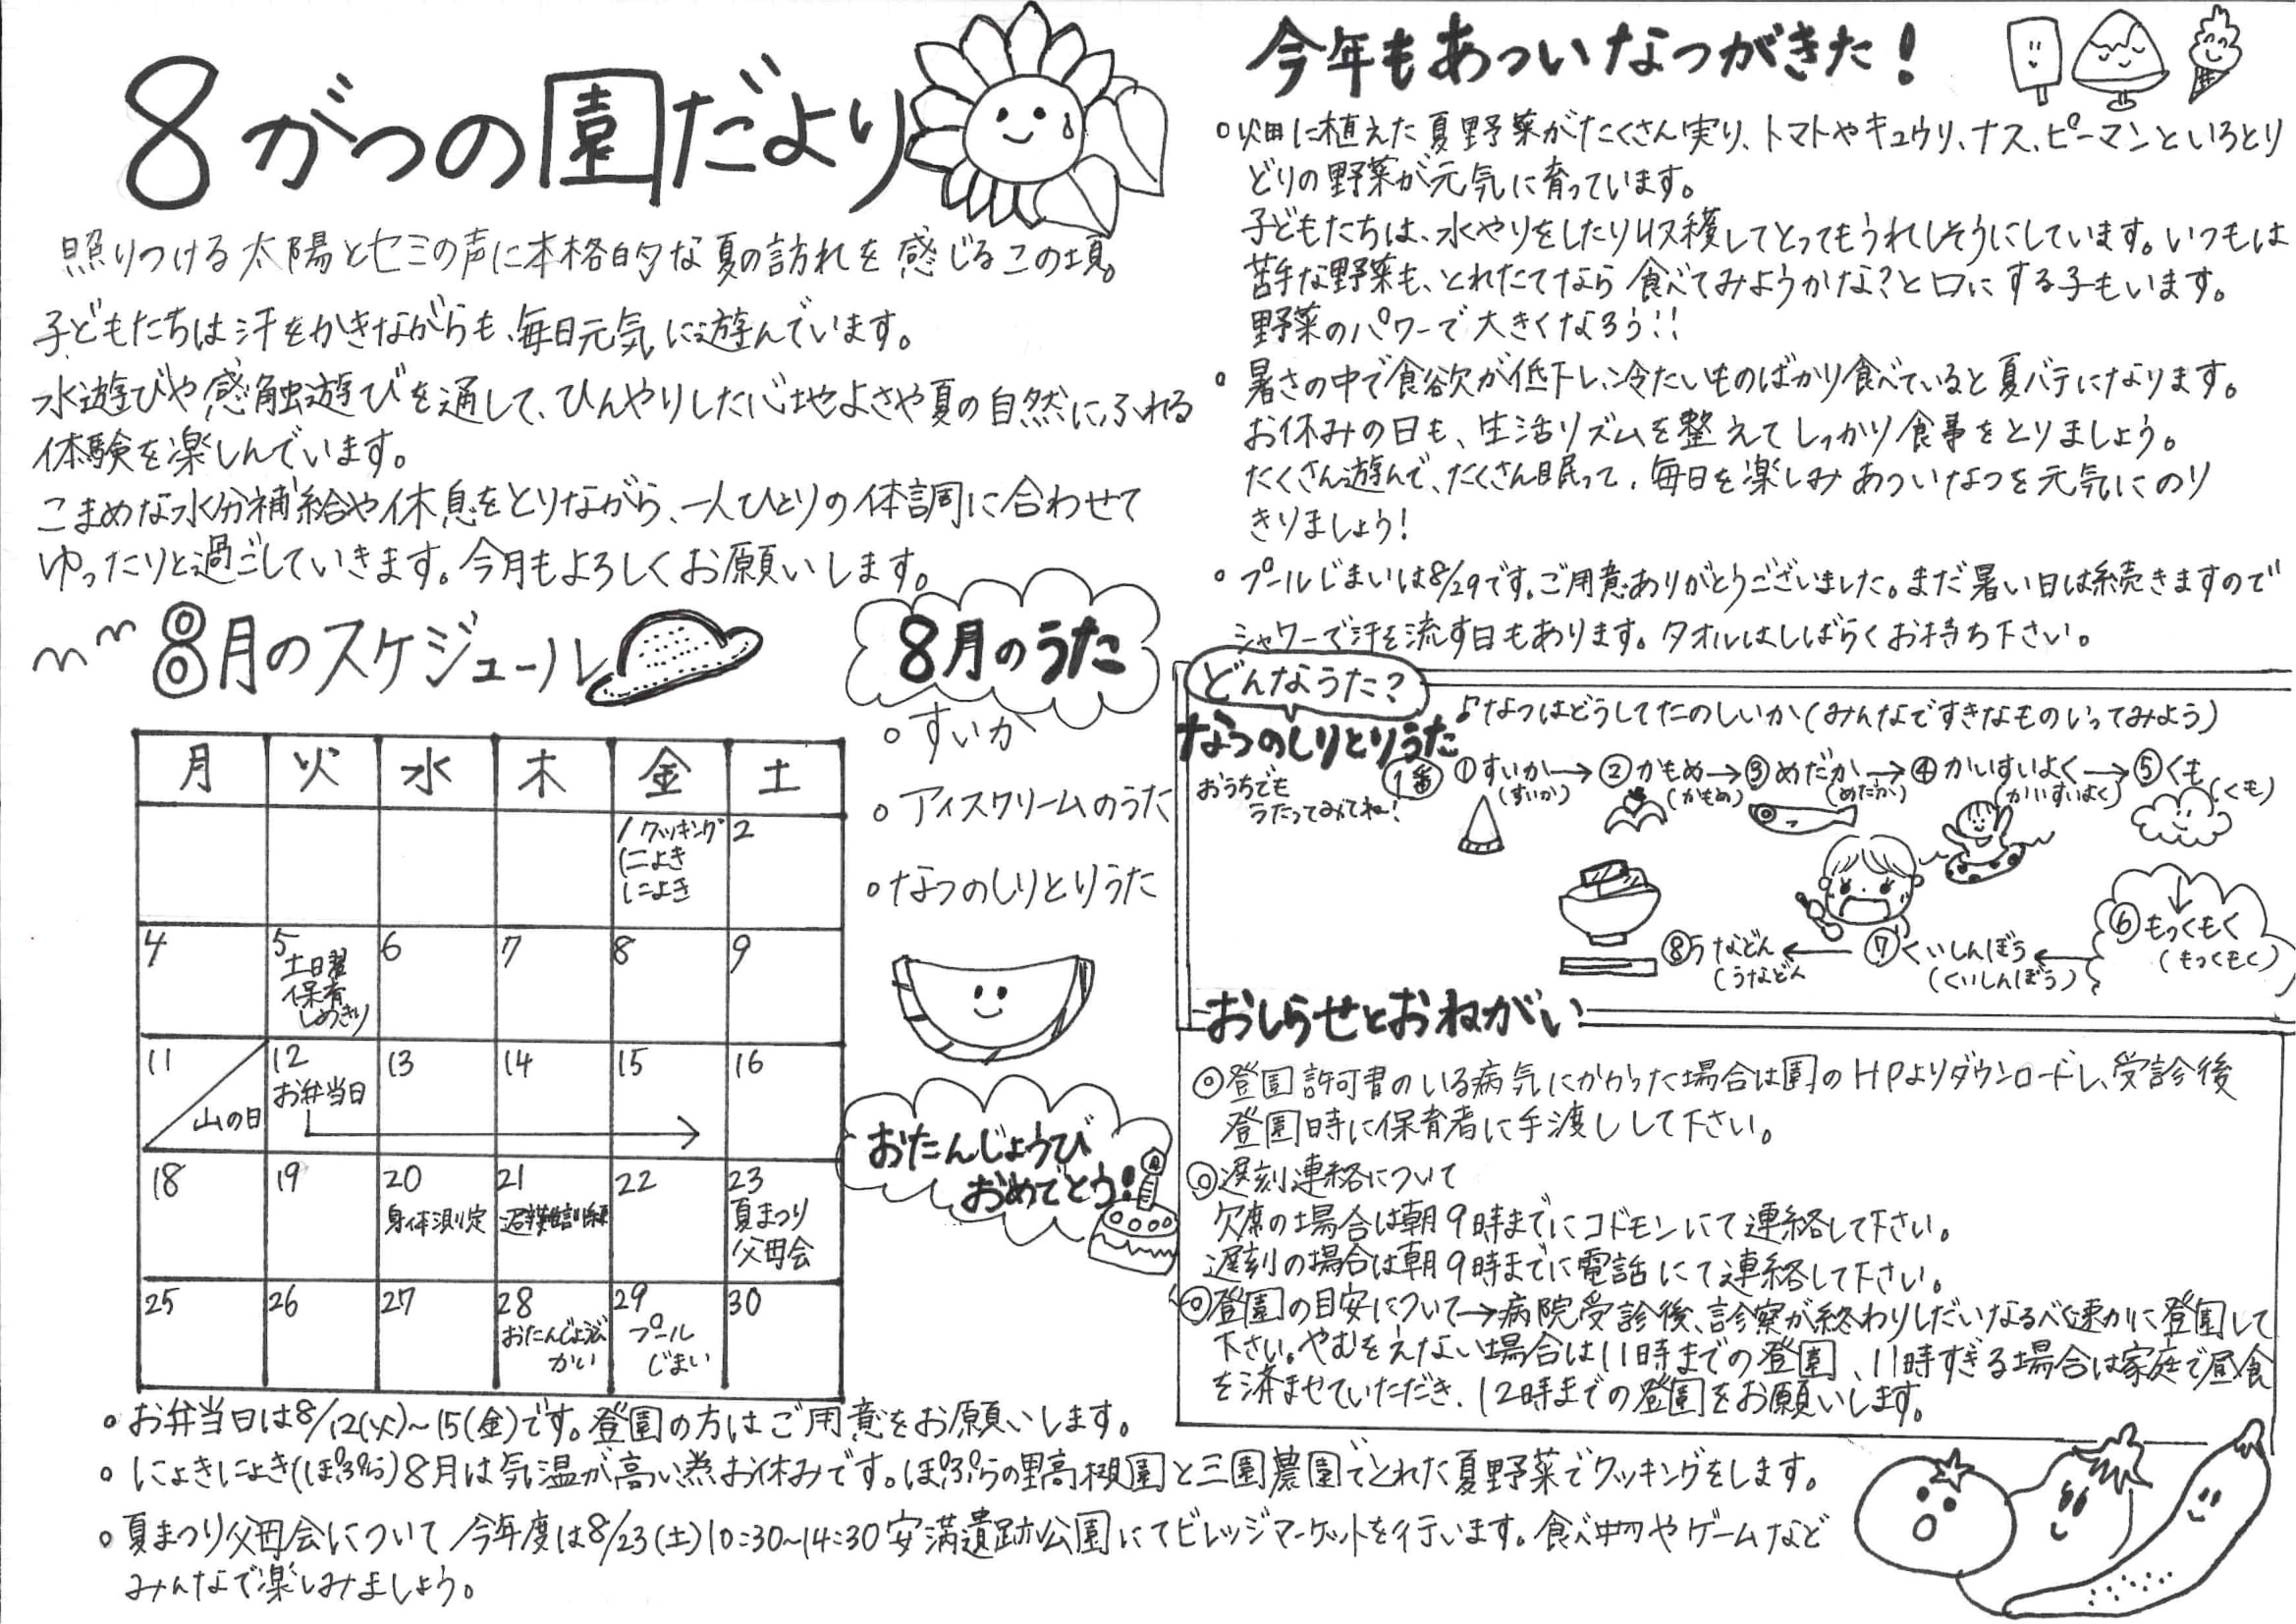 8がつの園だより
照りつける太陽とセミの声に本格的な夏の訪れを感じるこの頃。
子どもたちは汗をかきながらも、毎日元気に遊んでいます。
水遊びや感触遊びを通して、ひんやりした心地よさや夏の自然にふれる
体験を楽しんでいます。
こまめな水分補給や休息をとりながら、一人ひとりの体調に合わせて
ゆったりと過ごしていきます。今月もよろしくお願いします。
8月のスケジュール
月 火 水 木 金 土
1 クッキング 2
(にょき
にょき
4 5 6 7 8 9
土曜
保育
しめきり
11 12 13 14 15 16
山の日 お弁当日
18 19 20 21 22 23
身体測定 避難訓練 夏まつり
父母会
25 26 27 28 29 30
おたんじょうび プール
かい じまい
8月のうた
○すいか
○アイスクリームのうた
○なつのしりとりうた
おたんじょうび
おめでとう!
○お弁当日は8/12(火)~15(金)です。登園の方はご用意をお願いします。
○にょきにょき(ぽぷら)8月は気温が高い為お休みです。ぽぷらの里高槻園と三園農園でとれた夏野菜でクッキングをします。
○夏まつり父母会について 今年度は8/23(土)10:30~14:30安満遺跡公園にてビレッジマーケットを行います。食べ物やゲームなど
みんなで楽しみましょう。
今年もあついなつがきた!
○畑に植えた夏野菜がたくさん実り、トマトやキュウリ、ナス、ピーマンといろとり
どりの野菜が元気に育っています。
子どもたちは、水やりをしたり収穫してとってもうれしそうにしています。いつもは
苦手な野菜も、とれたてなら食べてみようかな?と口にする子もいます。
野菜のパワーで大きくなろう!!
○暑さの中で食欲が低下し、冷たいものばかり食べていると夏バテになります。
お休みの日も、生活リズムを整えてしっかり食事をとりましょう。
たくさん遊んで、たくさん眠って、毎日を楽しみあついなつを元気にのり
きりましょう!
○プールじまいは8/29です。ご用意ありがとうございました。まだ暑い日は続きますので
シャワーで汗を流す日もあります。タオルはしばらくお持ち下さい。
どんなうた?
なつのしりとりうた
おうちでも
うたってみてね!
♪なつはどうしてたのしいか(みんなですきなものいってみよう)
1番 ①すいか→②かもめ→③めだか→④かいすいよく→⑤くも
(すいか) (かもめ) (めだか) (かいすいよく) (くも)
↓
⑥もっくもく
(もっくもく)
⑧うなどん←⑦くいしんぼう←
(うなどん (くいしんぼう)
おしらせとおねがい
◎登園許可書のいる病気にかかった場合は園のHPよりダウンロードし、受診後
登園時に保育者に手渡しして下さい。
◎遅刻連絡について
欠席の場合は朝9時までにコドモンにて連絡して下さい。
遅刻の場合は朝9時までに電話にて連絡して下さい。
◎登園の目安について→病院受診後、診察が終わりしだいなるべく速かに登園して
下さい。やむをえない場合は11時までの登園、11時すぎる場合は家庭で昼食
を済ませていただき、12時までの登園をお願いします。